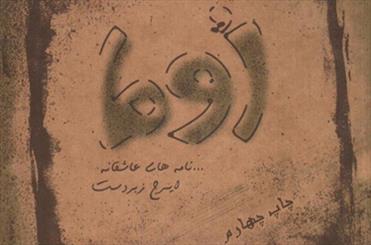 اوما
...نامه های عاشقانه
ایرج زبردست
چاپ چهارم